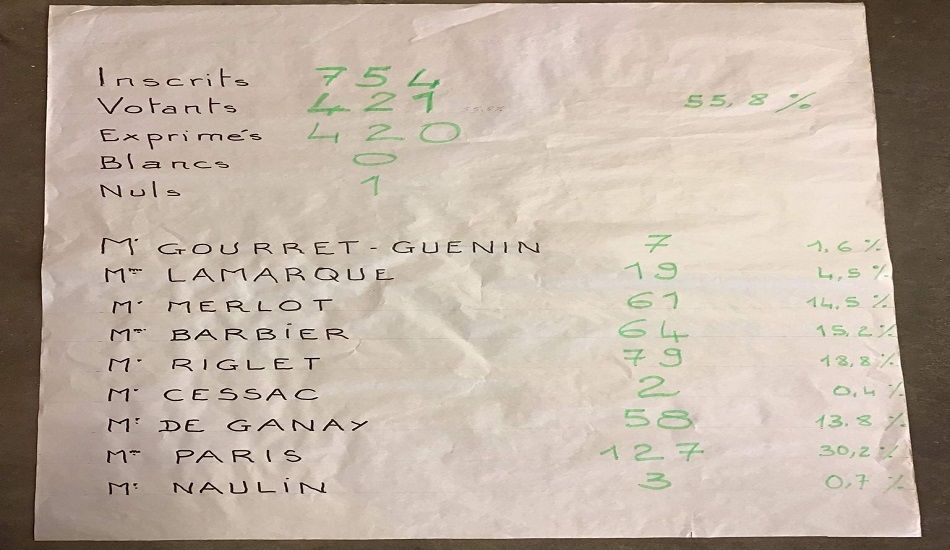 Inscrits 754
Votants 421 55,8 %
Exprimés 420
Blancs 0
Nuls 1
Mr GOURRET-GUENIN 7 1,6 %
Mme LAMARQUE 19 4,5 %
Mr MERLOT 61 14,5 %
Mme BARBIER 64 15,2 %
Mr RIGLET 79 18,8 %
Mr CESSAC 2 0,4 %
Mr DE GANAY 58 13.8 %
Mme PARIS 127 30,2 %
Mr NAULIN 3 0,7 %